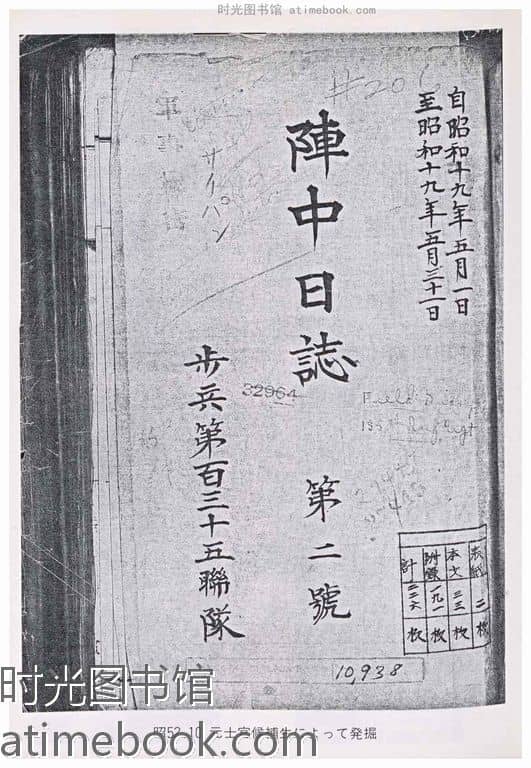 时光图书馆 atimebook.com
自昭和十九年五月一日
至昭和十九年五月三十一日
#20
陣中日誌
第二號
サイパン
歩兵第百三十五聯隊
32964
Field Diary
135th Inf Regt
表紙 二枚
本文 三三枚
附錄 一九一枚
計 二二六枚
10,938
时光图书馆
atimebook.com
昭53.10 元士官候補生によって発掘